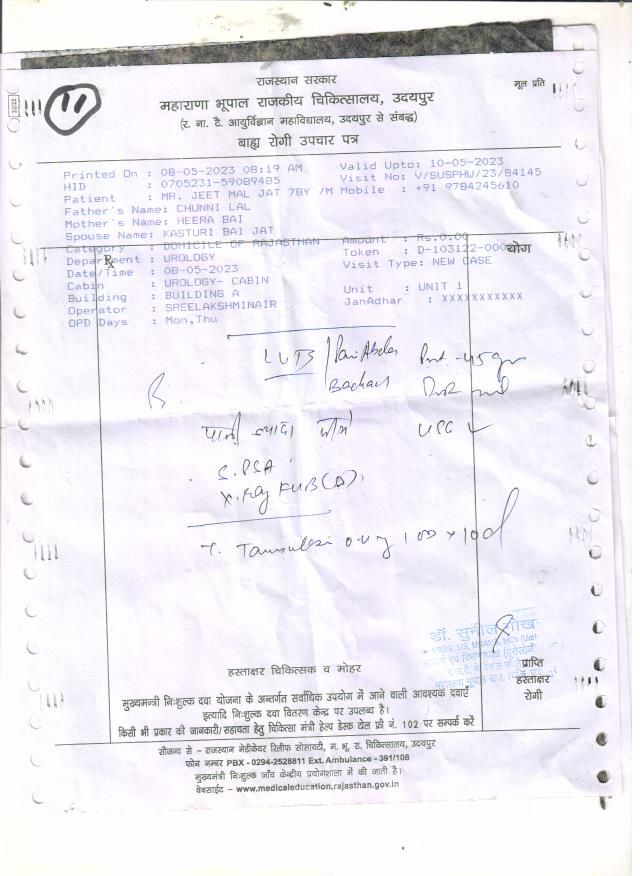 11
32/22
राजस्थान सरकार
मूल प्रति
महाराणा भूपाल राजकीय चिकित्सालय, उदयपुर
(र. ना. टै. आयुर्विज्ञान महाविद्यालय, उदयपुर से संबद्ध)
बाह्य रोगी उपचार पत्र
Printed On : 08-05-2023 08:19 AM Valid Upto: 10-05-2023
HID : 0705231-59089485 Visit No: V/SUSPHW/23/84145
Patient : MR. JEET MAL JAT 7BY /M Mobile : +91 9784245610
Father's Name: CHUNNI LAL
Mother's Name: HEERA BAI
Spouse Name: KASTURI BAI JAT
Category : DOMICILE OF RAJASTHAN Amount : Rs.0.00
Department : UROLOGY Token : D-103122-000 योग
R
Date/Time : 08-05-2023 Visit Type: NEW CASE
Cabin : UROLOGY- CABIN
Building : BUILDING A Unit : UNIT 1
Operator : SREELAKSHMINAIR JanAdhar : XXXXXXXXXXX
OPD Days : Mon,Thu
LUTS / Pain Abdo
पानी ज्यादा पीये
S. PSA
X. Ray KUB (A)
T.
डॉ. सुनील गोख
MBBS, MS, MCh (Uro)
हस्ताक्षर चिकित्सक व मोहर
प्राप्ति
हस्ताक्षर
रोगी
मुख्यमन्त्री निःशुल्क दवा योजना के अन्तर्गत सर्वाधिक उपयोग में आने वाली आवश्यक दवाएं
इत्यादि निःशुल्क दवा वितरण केन्द्र पर उपलब्ध है।
किसी भी प्रकार की जानकारी/सहायता हेतु चिकित्सा मंत्री हेल्प डेस्क टोल फ्री नं. 102 पर सम्पर्क करें
सौजन्य से - राजस्थान मेडीकेयर रिलीफ सोसायटी, म. भू. रा. चिकित्सालय, उदयपुर
फोन नम्बर PBX - 0294-2528811 Ext. Ambulance - 391/108
मुख्यमंत्री निःशुल्क जाँच केन्द्रीय प्रयोगशाला में की जाती है।
वेबसाईट - www.medicaleducation.rajasthan.gov.in